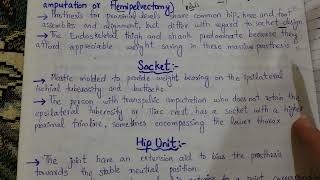 amputation or Hemipelvectomy)
→ Prosthesis for proximal levels share common hip, knee and foot
assembles and alignment, but differ with regard to socket design
→ The Endoskeletal thigh and shank predominate because they
afford appreciable weight saving in these massive prosthesis
Socket:-
→ Plastic molded to provide weight bearing on the ipsilateral
ischial tuberosity and buttocks.
→ The person with transpelvic amputation who does not retain the
ipsilateral tuberosity or iliac crest has a socket with a higher
proximal trimline, sometimes encompassing the lower thorax
Hip Unit:-
→ The joint have an extension aid to bias the prosthesis
towards the stable neutral position.